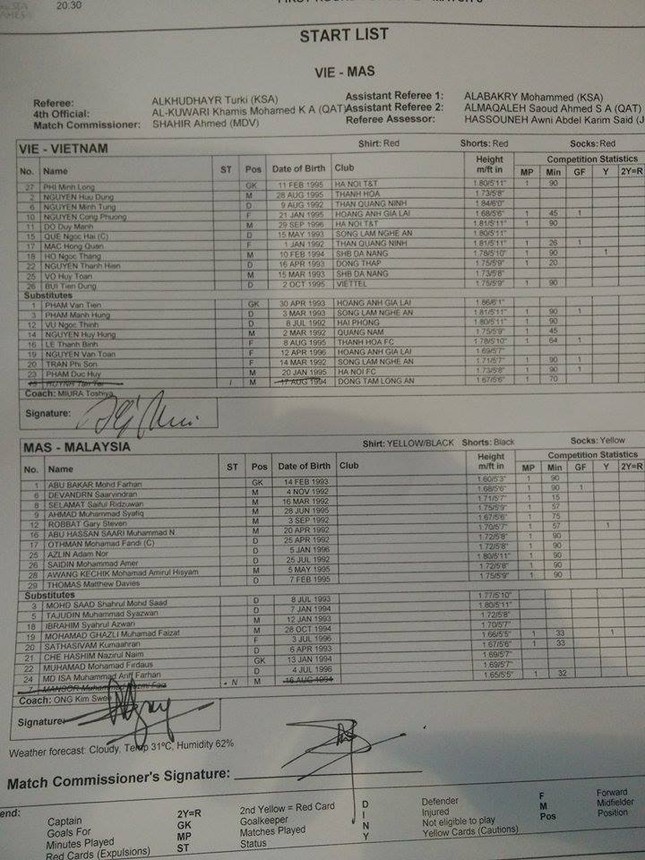 20.30
START LIST
VIE - MAS
Referee: ALKHUDHAYR Turki (KSA) Assistant Referee 1: ALABAKRY Mohammed (KSA)
4th Official: AL-KUWARI Khamis Mohamed K A (QAT) Assistant Referee 2: ALMAQALEH Saoud Ahmed S A (QAT)
Match Commissioner: SHAHIR Ahmed (MDV) Referee Assessor: HASSOUNEH Awni Abdel Karim Said (J
VIE - VIETNAM Shirt: Red Shorts: Red Socks: Red
No. Name ST Pos Date of Birth Club Height m/ft in Competition Statistics
MP Min GF Y 2Y=R
27 PHI Minh Long GK 11 FEB 1995 HA NOI T&T 1.80/5'11" 1 90
2 NGUYEN Huu Dung M 28 AUG 1995 THANH HOA 1.73/5'8"
6 NGUYEN Minh Tung D 9 AUG 1992 THAN QUANG NINH 1.84/6'0"
10 NGUYEN Cong Phuong F 21 JAN 1995 HOANG ANH GIA LAI 1.68/5'6" 1 45 1
11 DO Duy Manh M 29 SEP 1996 HA NOI T&T 1.81/5'11" 1 90
15 QUE Ngoc Hai (C) D 15 MAY 1993 SONG LAM NGHE AN 1.80/5'11"
17 MAC Hong Quan F 1 JAN 1992 THAN QUANG NINH 1.81/5'11" 1 26 1
18 HO Ngoc Thang M 10 FEB 1994 SHB DA NANG 1.78/5'10" 1 90 1
22 NGUYEN Thanh Hien D 16 APR 1993 DONG THAP 1.75/5'9" 1 20
25 VO Huy Toan M 15 MAR 1993 SHB DA NANG 1.73/5'8"
26 BUI Tien Dung D 2 OCT 1995 VIETTEL 1.75/5'9" 1 90
Substitutes
1 PHAM Van Tien GK 30 APR 1993 HOANG ANH GIA LAI 1.86/6'1"
3 PHAM Manh Hung D 3 MAR 1993 SONG LAM NGHE AN 1.81/5'11" 1 90 1
12 VU Ngoc Thinh D 8 JUL 1992 HAI PHONG 1.80/5'11" 1 90
14 NGUYEN Huy Hung M 2 MAR 1992 QUANG NAM 1.75/5'9" 1 45
16 LE Thanh Binh F 8 AUG 1995 THANH HOA FC 1.78/5'10" 1 64 1
19 NGUYEN Van Toan F 12 APR 1996 HOANG ANH GIA LAI 1.69/5'7"
20 TRAN Phi Son F 14 MAR 1992 SONG LAM NGHE AN 1.71/5'7" 1 90 1
23 PHAM Duc Huy M 20 JAN 1995 HA NOI FC 1.73/5'8" 1 90 1
I M 17 AUG 1994 DONG TAM LONG AN 1.67/5'6" 1 70
Coach: MIURA Toshiya
Signature:
MAS - MALAYSIA Shirt: YELLOW/BLACK Shorts: Black Socks: Yellow
No. Name ST Pos Date of Birth Club Height m/ft in Competition Statistics
MP Min GF Y 2Y=R
1 ABU BAKAR Mohd Farhan GK 14 FEB 1993 1.60/5'3" 1 90
6 DEVANDRN Saarvindran M 4 NOV 1992 1.68/5'6" 1 90 1
8 SELAMAT Saiful Ridzuwan M 16 MAR 1992 1.71/5'7" 1 15
9 AHMAD Muhammad Syafiq M 28 JUN 1995 1.75/5'9" 1 57
12 ROBBAT Gary Steven M 3 SEP 1992 1.67/5'6" 1 75
16 ABU HASSAN SAARI Muhammad N M 20 APR 1992 1.70/5'7" 1 57 1
17 OTHMAN Mohamad Fandi (C) D 25 APR 1992 1.72/5'8" 1 90
25 AZLIN Adam Nor D 5 JAN 1996 1.72/5'8" 1 90
26 SAIDIN Mohamad Amer D 25 JUL 1992 1.80/5'11" 1 90
28 AWANG KECHIK Mohamad Amirul Hisyam M 5 MAY 1995 1.72/5'8" 1 90
29 THOMAS Matthew Davies D 7 FEB 1995 1.75/5'9" 1 90
Substitutes
3 MOHD SAAD Shahrul Mohd Saad D 8 JUL 1993 1.77/5'10"
5 TAJUDIN Muhammad Syazwan D 7 JAN 1994 1.80/5'11"
18 IBRAHIM Syahrul Azwan M 12 JAN 1993 1.72/5'8"
19 MOHAMAD GHAZLI Muhamad Faizat M 28 OCT 1994 1.70/5'7"
20 SATHASIVAM Kumaahran F 3 JUL 1996 1.66/5'5" 1 33 1
21 CHE HASHIM Nazirul Naim D 6 APR 1993 1.67/5'6" 1 33
22 MUHAMAD Mohamad Firdaus GK 13 JAN 1994 1.69/5'7"
24 MD ISA Muhamad Ariff Farhan D 4 JUL 1996 1.69/5'7"
7 MANSOR Muhammad N M 16 AUG 1994 1.65/5'5" 1 32
Coach: ONG Kim Swee
Signature:
Weather forecast: Cloudy, Temp 31ºC, Humidity 62%
Match Commissioner's Signature:
end:
Captain 2Y=R 2nd Yellow = Red Card D Defender F Forward
Goals For GK Goalkeeper I Injured M Midfielder
Minutes Played MP Matches Played N Not eligible to play Pos Position
Red Cards (Expulsions) ST Status Y Yellow Cards (Cautions)